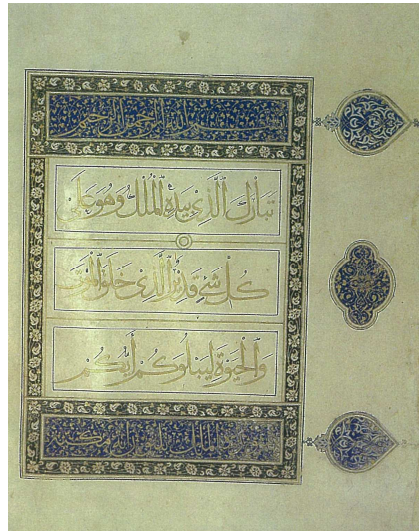 بسم الله الرحمن الرحيم
تَبَارَكَ ٱلَّذِي بِيَدِهِ ٱلْمُلْكُ وَهُوَ عَلَىٰ
كُلِّ شَيْءٍ قَدِيرٌ ٱلَّذِي خَلَقَ ٱلْمَوْتَ
وَٱلْحَيَوٰةَ لِيَبْلُوَكُمْ أَيُّكُمْ